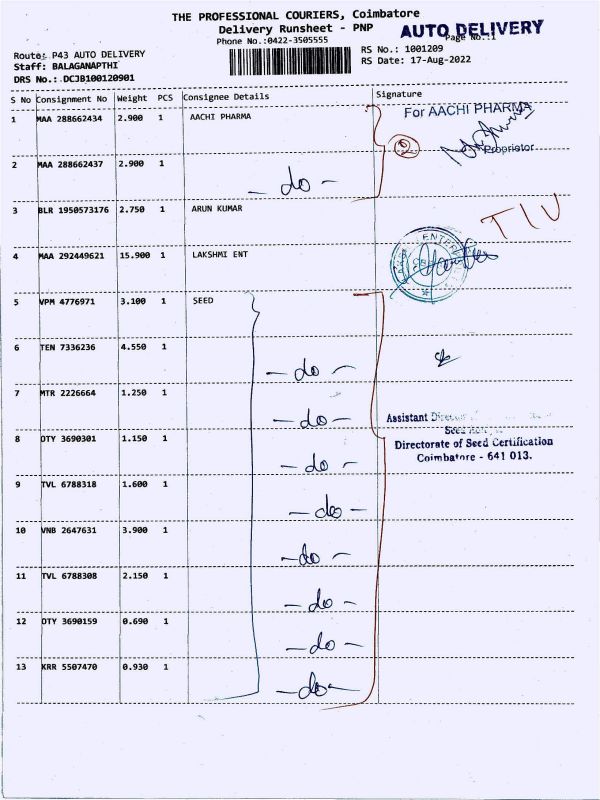 THE PROFESSIONAL COURIERS, Coimbatore
Delivery Runsheet - PNP
AUTO DELIVERY
Phone No.:0422-3505555
Page No.:1
Route: P43 AUTO DELIVERY
RS No.: 1001209
Staff: BALAGANAPTHI
RS Date: 17-Aug-2022
DRS No.: DCJB100120901
S No Consignment No Weight PCS Consignee Details Signature
1 MAA 288662434 2.900 1 AACHI PHARMA
For AACHI PHARMA
2
Proprietor
2 MAA 288662437 2.900 1
- do -
3 BLR 1950573176 2.750 1 ARUN KUMAR
4 MAA 292449621 15.900 1 LAKSHMI ENT
5 VPM 4776971 3.100 1 SEED
6 TEN 7336236 4.550 1
- do -
7 MTR 2226664 1.250 1
- do -
Assistant
8 OTY 3690301 1.150 1
- do -
Directorate of Seed Certification
Coimbatore - 641 013.
9 TVL 6788318 1.600 1
- do -
10 VNB 2647631 3.900 1
- do -
11 TVL 6788308 2.150 1
- do -
12 OTY 3690159 0.690 1
- do -
13 KRR 5507470 0.930 1
- do -